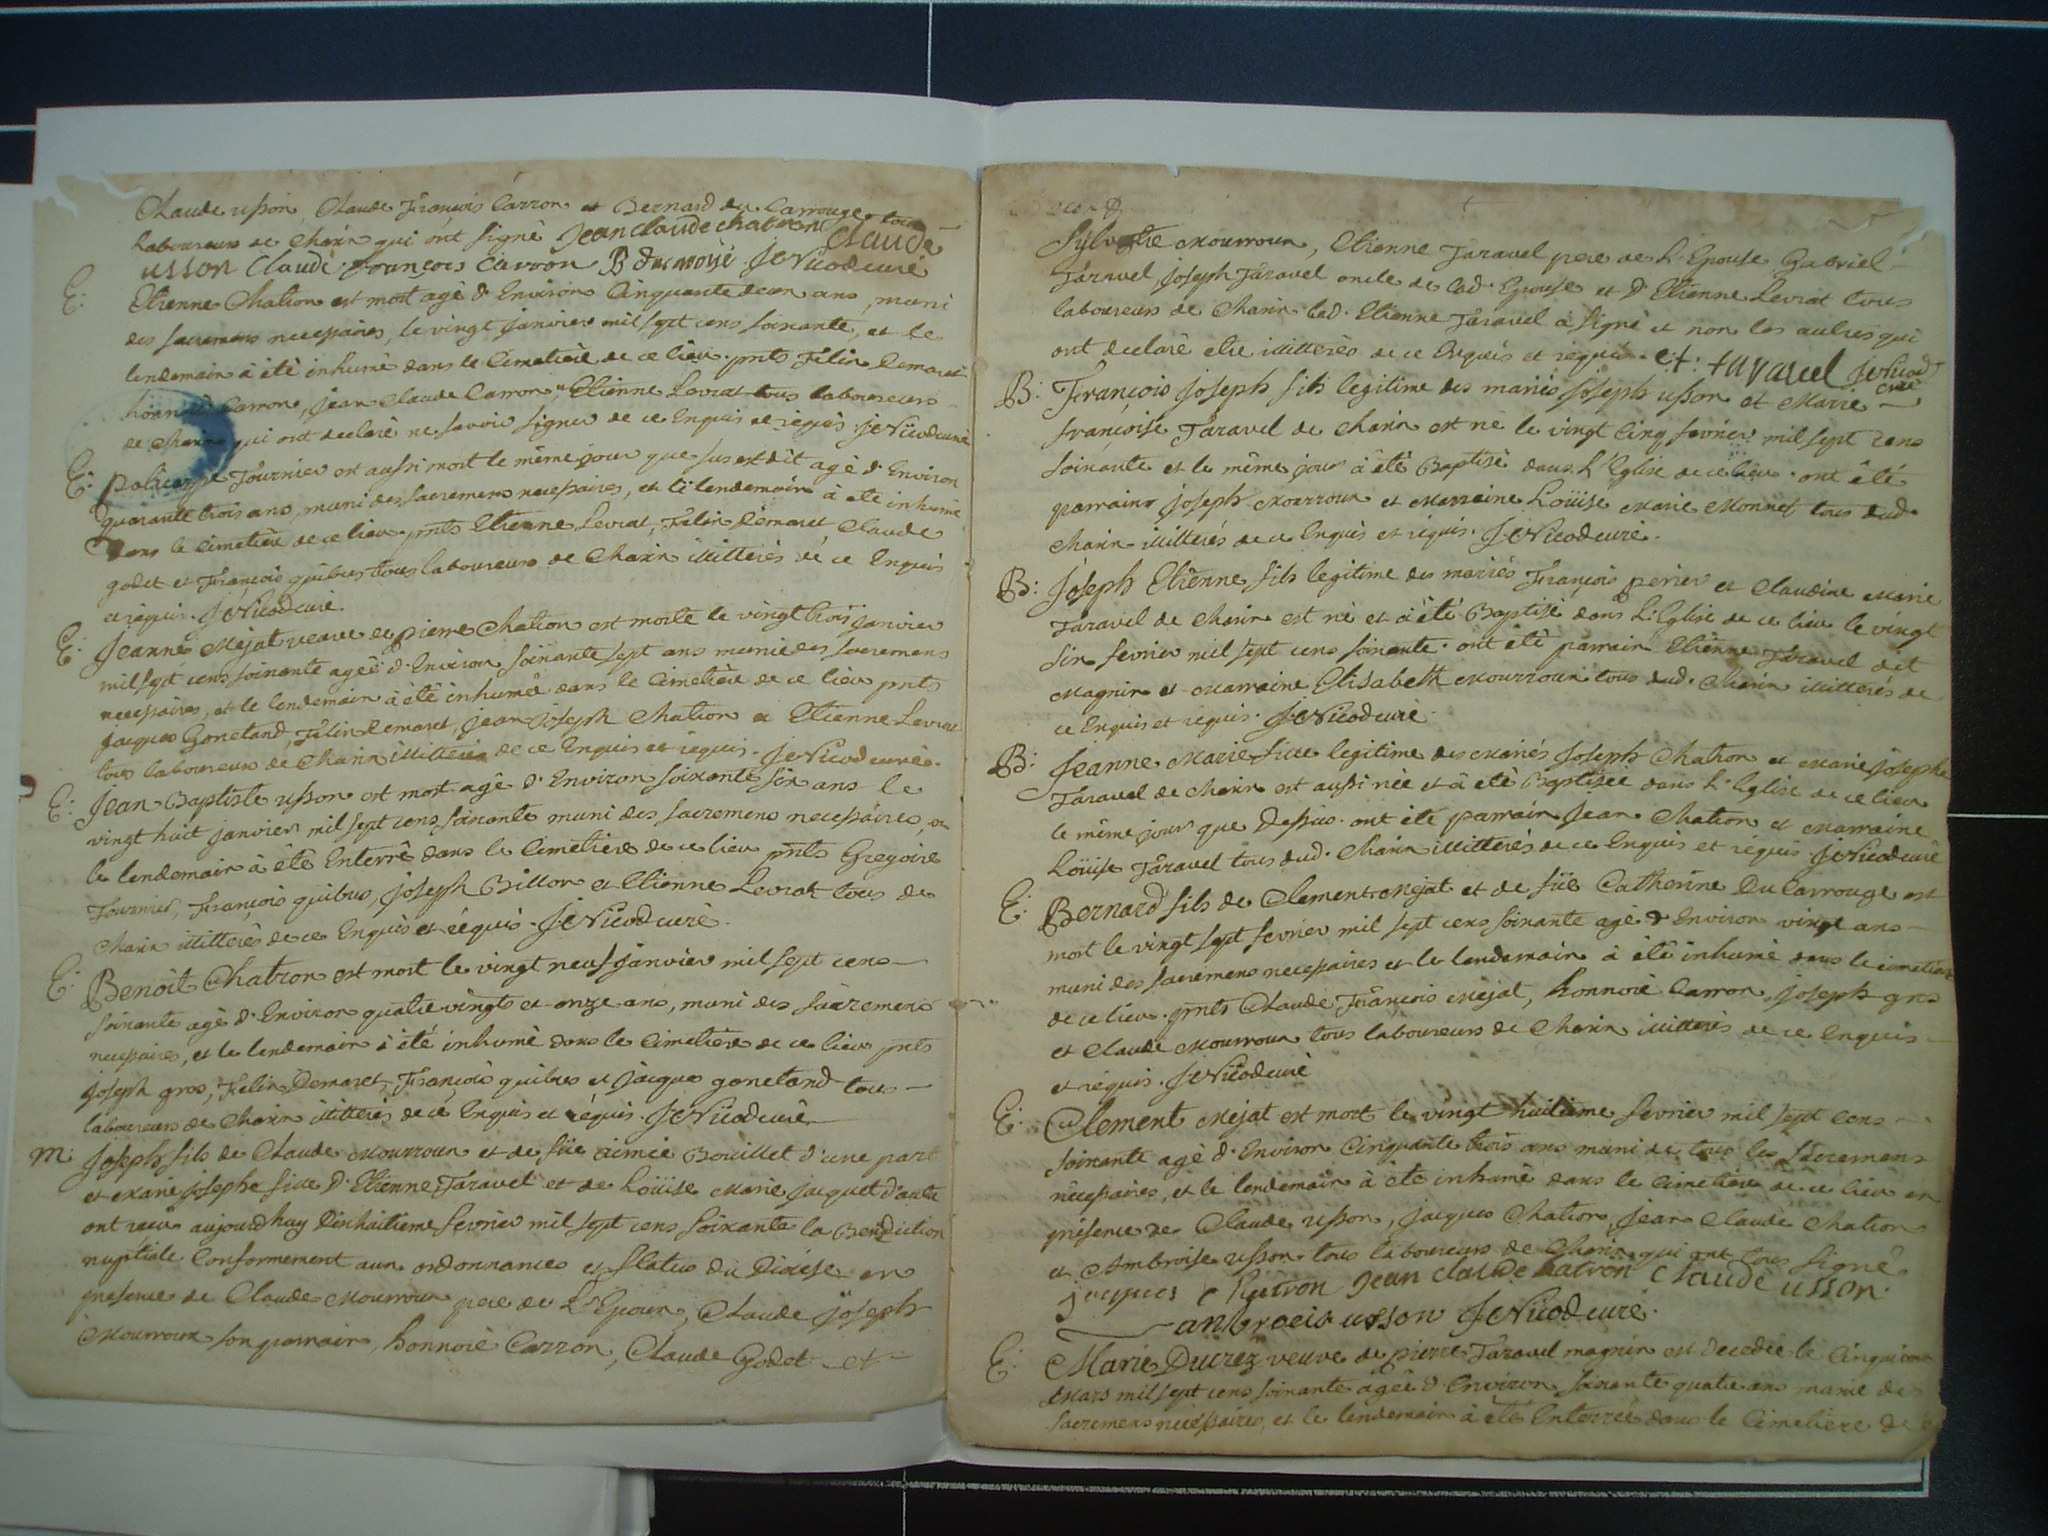 Claude usson, Claude François Carron et Bernard du Carrouge tous
laboureurs de Charix qui ont signé jean claude chatron claude
usson Claude François Carron B ducarouje JeNicod curé
E: Etienne Chatron est mort agé d'Environ Cinquante deux ans, muni
des sacremens necessaires, le vingt janvier mil sept cens soixante, et le
lendemain à été inhumé dans le Cimetière de ce lieu. pnts Félix Demaret
honnoré Carron, jean Claude Carron, Etienne Levrat tous laboureurs
de Charix qui ont declaré ne savoir signer de ce Enquis et requis JeNicod curé
E: policarpe Tournier est aussi mort le même jour que sus est dit agé d'Environ
quarante trois ans, muni des sacremens necessaires, et le lendemain à été inhumé
Dans le Cimetière de ce lieu. pnts Etienne Levrat, Félix Demaret, Claude
godet et François quibus tous laboureurs de Charix illitterés de ce Enquis
et requis. JeNicod curé
E: Jeanne Mejat veuve de pierre Chatron est morte le vingt trois janvier
mil sept cens soixante agée d'Environ soixante sept ans munie des sacremens
necessaires, et le lendemain à été inhumée dans le Cimetière de ce lieu pnts
jacques Gonetand, Félix Demaret, jean joseph Chatron et Etienne Levrat
tous laboureurs de Charix illitterés de ce Enquis et requis. JeNicod curé.
E: Jean Baptiste usson est mort agé d'Environ soixante six ans le
vingt huit janvier mil sept cens soixante muni des sacremens necessaires, et
le lendemain à été Enterré dans le Cimetière de ce lieu pnts Gregoire
Tournier, François quibus, joseph Billon et Etienne Levrat tous de
Charix illitterés de ce Enquis et requis. JeNicod curé.
E: Benoit Chatron est mort le vingt neuf janvier mil sept cens
soixante agé d'Environ quatre vingts et onze ans, muni des sacremens
necessaires, et le lendemain à été inhumé dans le Cimetière de ce lieu pnts
joseph gros, Félix Demaret, François quibus et jacques gonetand tous
laboureurs de Charix illitterés de ce Enquis et requis. JeNicod curé
M: Joseph fils de Claude Mourroux et de füe aimée Bouillet d'une part
et Marie josephe fille d'Etienne Taravel et de Loüise Marie jacquet d'autre
ont reçu aujourdhuy Dixhuitieme fevrier mil sept cens soixante la Benediction
nuptiale Conformement aux ordonnances et Statuts du Diocése en
presence de Claude Mourroux pere de L'Epoux, Claude joseph
Mourroux son parrain, honnoré Carron, Claude Godet et
Sylvestre Mourroux, Etienne Taravel pere de L'Epouse Gabriel
Taravel joseph Taravel oncle de lad. Epouse et d'Etienne Levrat tous
laboureurs de Charix led. Etienne Taravel à signé et non les autres qui
ont declaré etre illitterés de ce Enquis et requis. et: taravel JeNicod
curé
B: François joseph fils legitime des mariés joseph usson et Marie
françoise Taravel de Charix est né le vingt cinq fevrier mil sept cens
soixante et le même jour à été Baptisé dans L'Eglise de ce lieu. ont été
parrains joseph Mourroux et Marraine Loüise Marie Monnet tous dud.
Charix illitterés de ce Enquis et requis. JeNicod curé.
B: Joseph Etienne fils legitime des mariés François perier et Claudine Marie
Taravel de Charix est né et à été Baptisé dans L'Eglise de ce lieu le vingt
six fevrier mil sept cens soixante. ont été parrain Etienne Taravel dit
Magnin et Marraine Elisabeth Mourroux tous dud. Charix illitterés de
ce Enquis et requis. JeNicod curé.
B: Jeanne Marie fille legitime des Mariés Joseph Chatron et Marie josephe
Taravel de Charix est aussi née et à été Baptisée dans L'Eglise de ce lieu
le même jour que Dessus. ont été parrain Jean Chatron et Marraine
Loüise Taravel tous dud. Charix illitterés de ce Enquis et requis JeNicod curé
E: Bernard fils de Clement Mejat et de füe Catherine Du Carrouge est
mort le vingt sept fevrier mil sept cens soixante agé d'Environ vingt ans
muni des sacremens necessaires et le lendemain à été inhumé dans le cimetière
de ce lieu. pnts Claude François Mejat, honnoré Carron, joseph gros
et Claude Mourroux tous laboureurs de Charix illitterés de ce Enquis
et requis. JeNicod curé
E: Clement Mejat est mort le vingt huitième fevrier mil sept cens
soixante agé d'Environ Cinquante trois ans muni de tous les sacremens
necessaires, et le lendemain à été inhumé dans le Cimetière de ce lieu en
présence de Claude usson, jacques Chatron, jean Claude Chatron
et Ambroise usson tous laboureurs de Charix qui ont tous signé
jacques Chatron jean claude chatron claude usson.
anbroeis usson JeNicod curé.
E: Marie Ducrez veuve de pierre Taravel magnin est decedée le Cinquieme
Mars mil sept cens soixante agée d'Environ soixante quatre ans munie des
sacremens necessaires, et le lendemain à été Enterrée dans le Cimetiere de ce